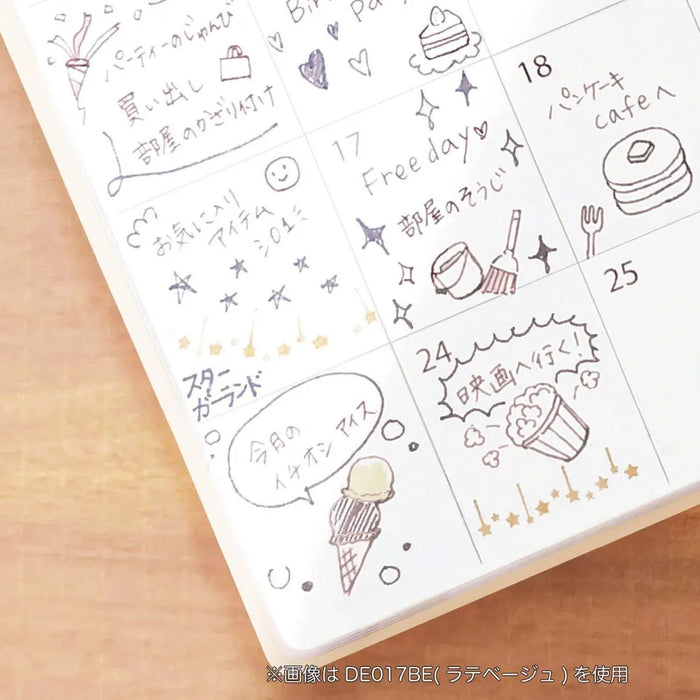 パーティーのじゅんび
買い出し
部屋のかざり付け
17
Free day
部屋のそうじ
18
パンケーキ
cafeへ
お気に入り
アイテム
スター
ガーランド
24
映画へ行く!
25
今月の
イチオシ アイス
※画像は DE017BE( ラテベージュ ) を使用